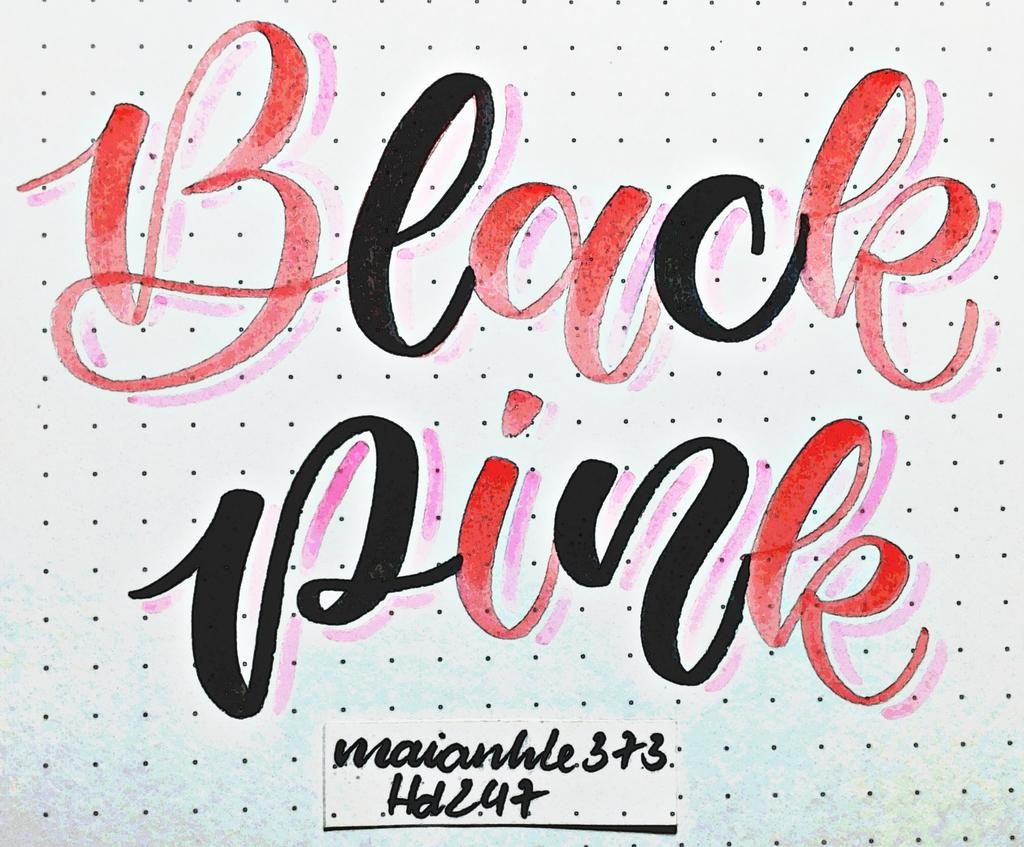 Black
pink
maianhle373.
Hd247